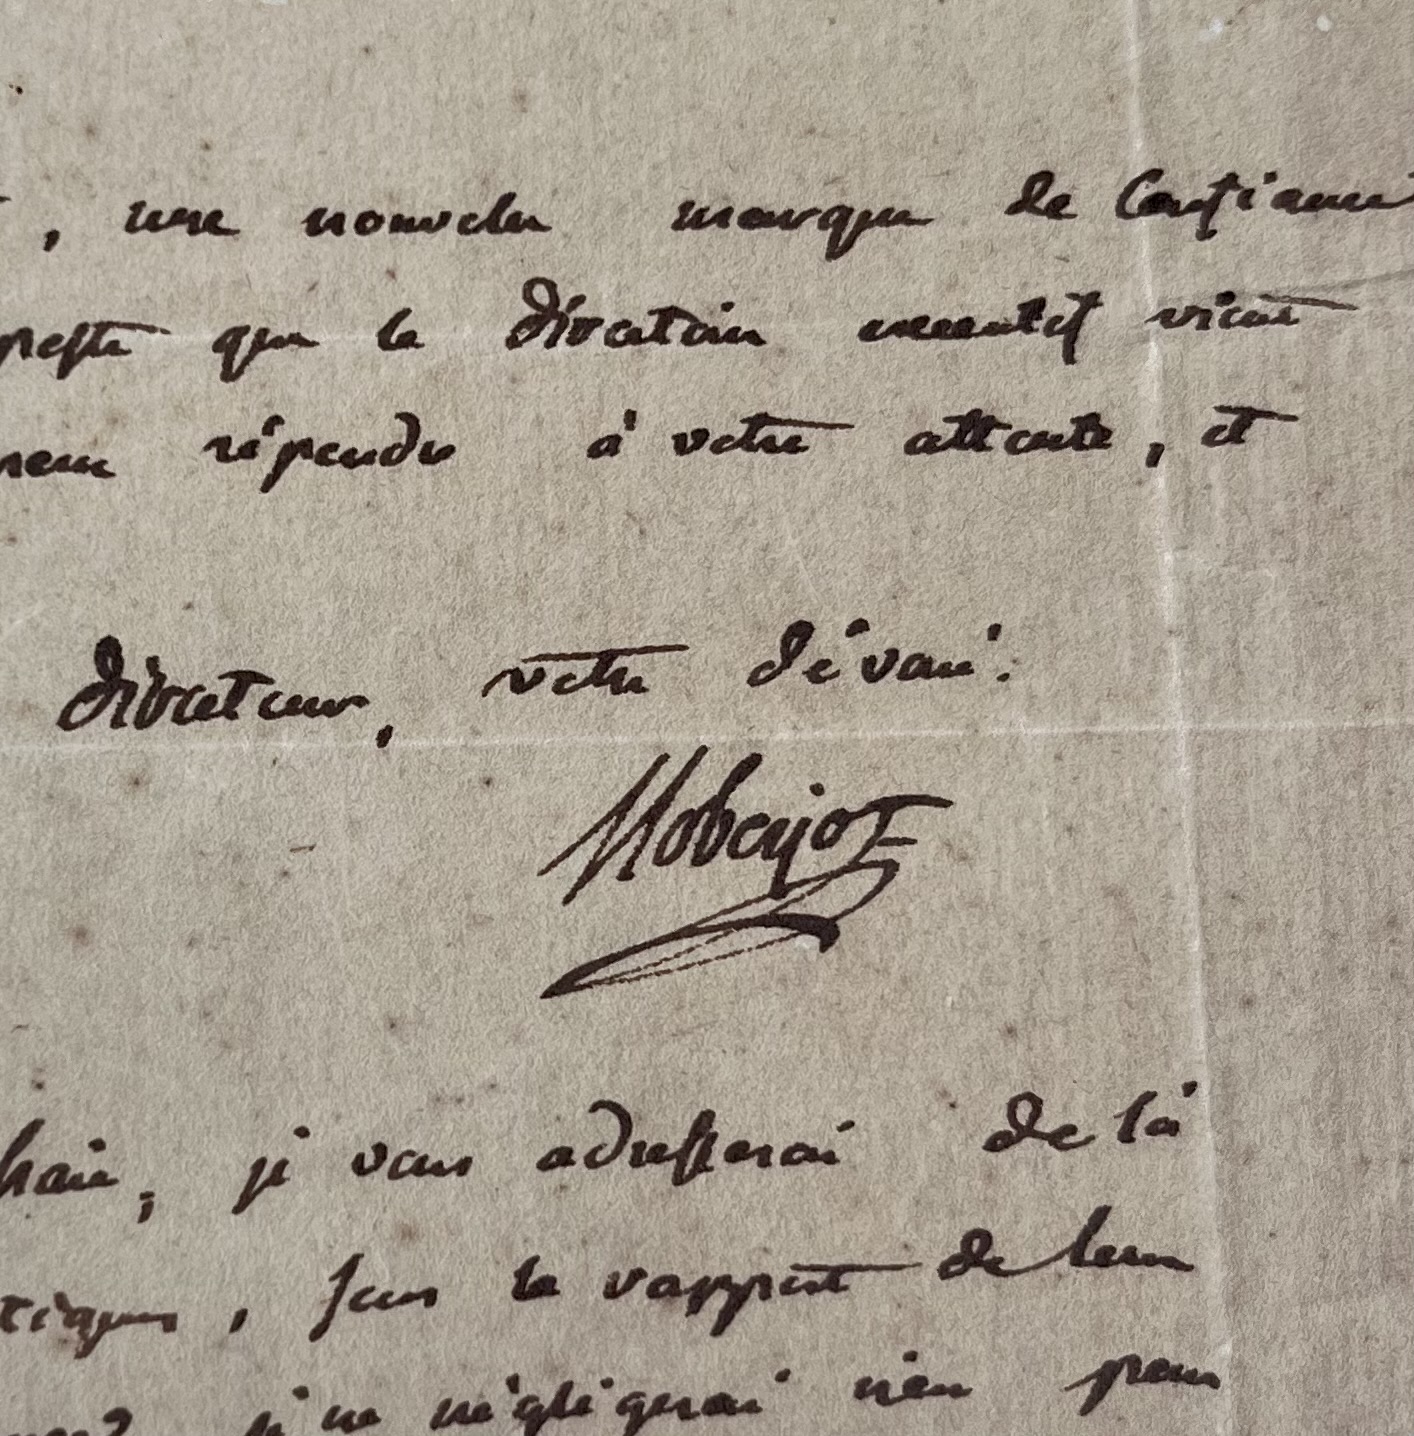 , une nouvelle marque de Confiance
que le directoire executif vient
répondre à votre attente, et
directeur, votre dévoué.
Roberjot
haie, je vous adresserai de là
, sous le rapport de leur
je ne négligerai rien pour